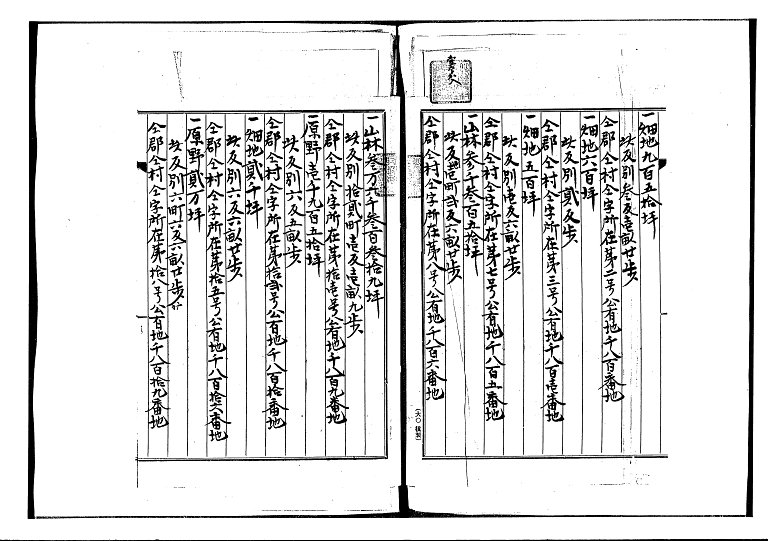 一畑地九百五拾坪
此反別参反壱畝廿歩
仝郡仝村仝字所在第二号公有地千八百番地
一畑地六百坪
此反別貳反歩
仝郡仝村仝字所在第三号公有地千八百壱番地
一畑地五百坪
此反別壱反六畝廿歩
仝郡仝村仝字所在第七号公有地千八百五番地
一山林参千参百五拾坪
此反別壱町壱反六畝廿歩
仝郡仝村仝字所在第八号公有地千八百六番地
一山林参万六千参百参拾九坪
此反別拾貳町壱反壱畝九歩
仝郡仝村仝字所在第拾壱号公有地千八百九番地
一原野壱千九百五拾坪
此反別六反五畝歩
仝郡仝村仝字所在第拾弐号公有地千八百拾番地
一畑地貳千坪
此反別六反六畝廿歩
仝郡仝村仝字所在第拾五号公有地千八百拾六番地
一原野貳万坪
此反別六町六反六畝廿歩
仝郡仝村仝字所在第拾八号公有地千八百拾九番地